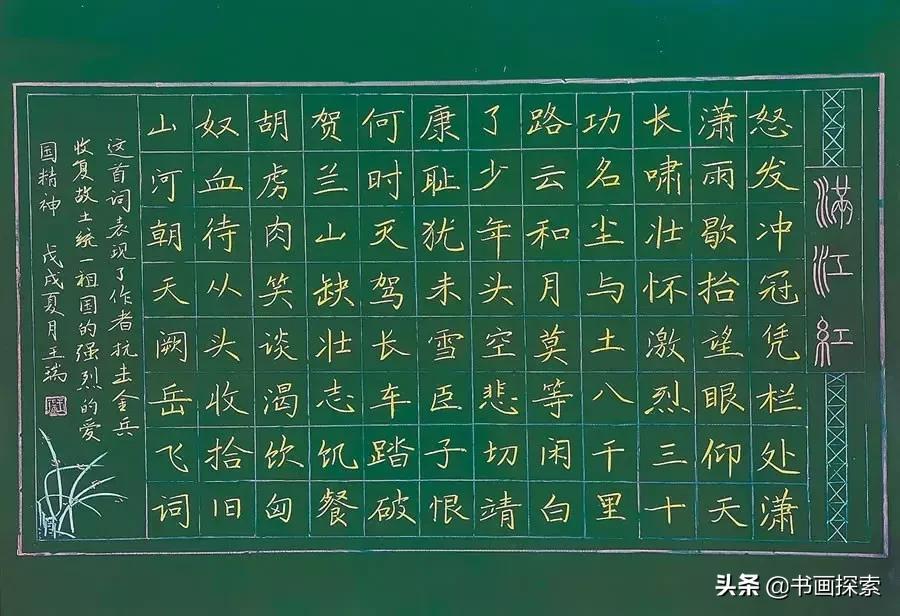 滿江紅
怒发冲冠凭栏处潇
潇雨歇抬望眼仰天
长啸壮怀激烈三十
功名尘与土八千里
路云和月莫等闲白
了少年头空悲切靖
康耻犹未雪臣子恨
何时灭驾长车踏破
贺兰山缺壮志饥餐
胡虏肉笑谈渴饮匈
奴血待从头收拾旧
山河朝天阙岳飞词
这首词表现了作者抗击金兵
收复故土统一祖国的强烈的爱
国精神 戊戌夏月王瑞
头条 @书画探索